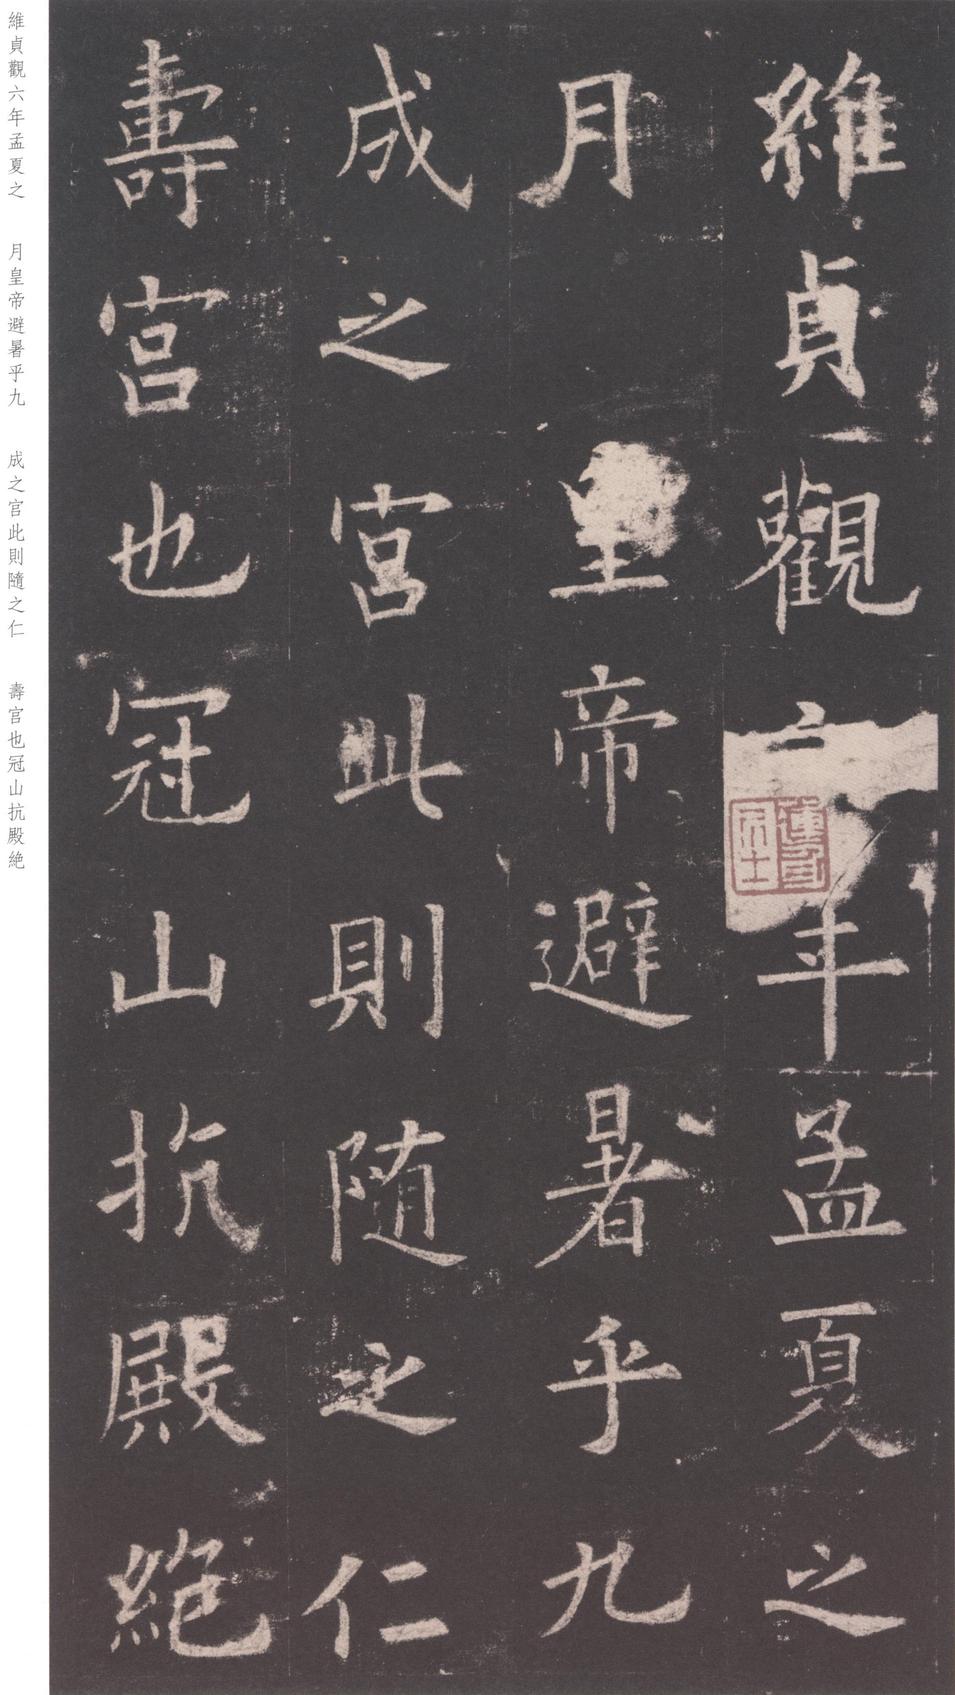 維貞觀六年孟夏之
月皇帝避暑乎九
成之宮此則隨之仁
壽宮也冠山抗殿絕
維貞觀六年孟夏之 月皇帝避暑乎九 成之宮此則隨之仁 壽宮也冠山抗殿絕